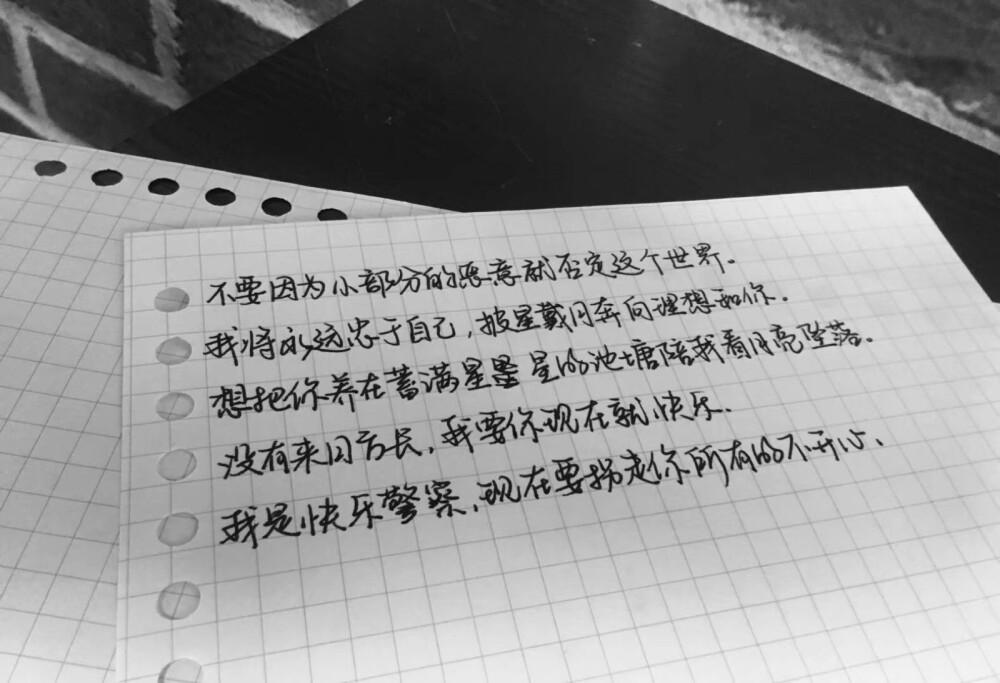 不要因为小部分的恶意就否定这个世界.
我将永远忠于自己,披星戴月奔向理想和你.
想把你养在蓄满星星的池塘陪我看月亮坠落.
没有来日方长,我要你现在就快乐.
我是快乐警察,现在要拐走你所有的不开心、